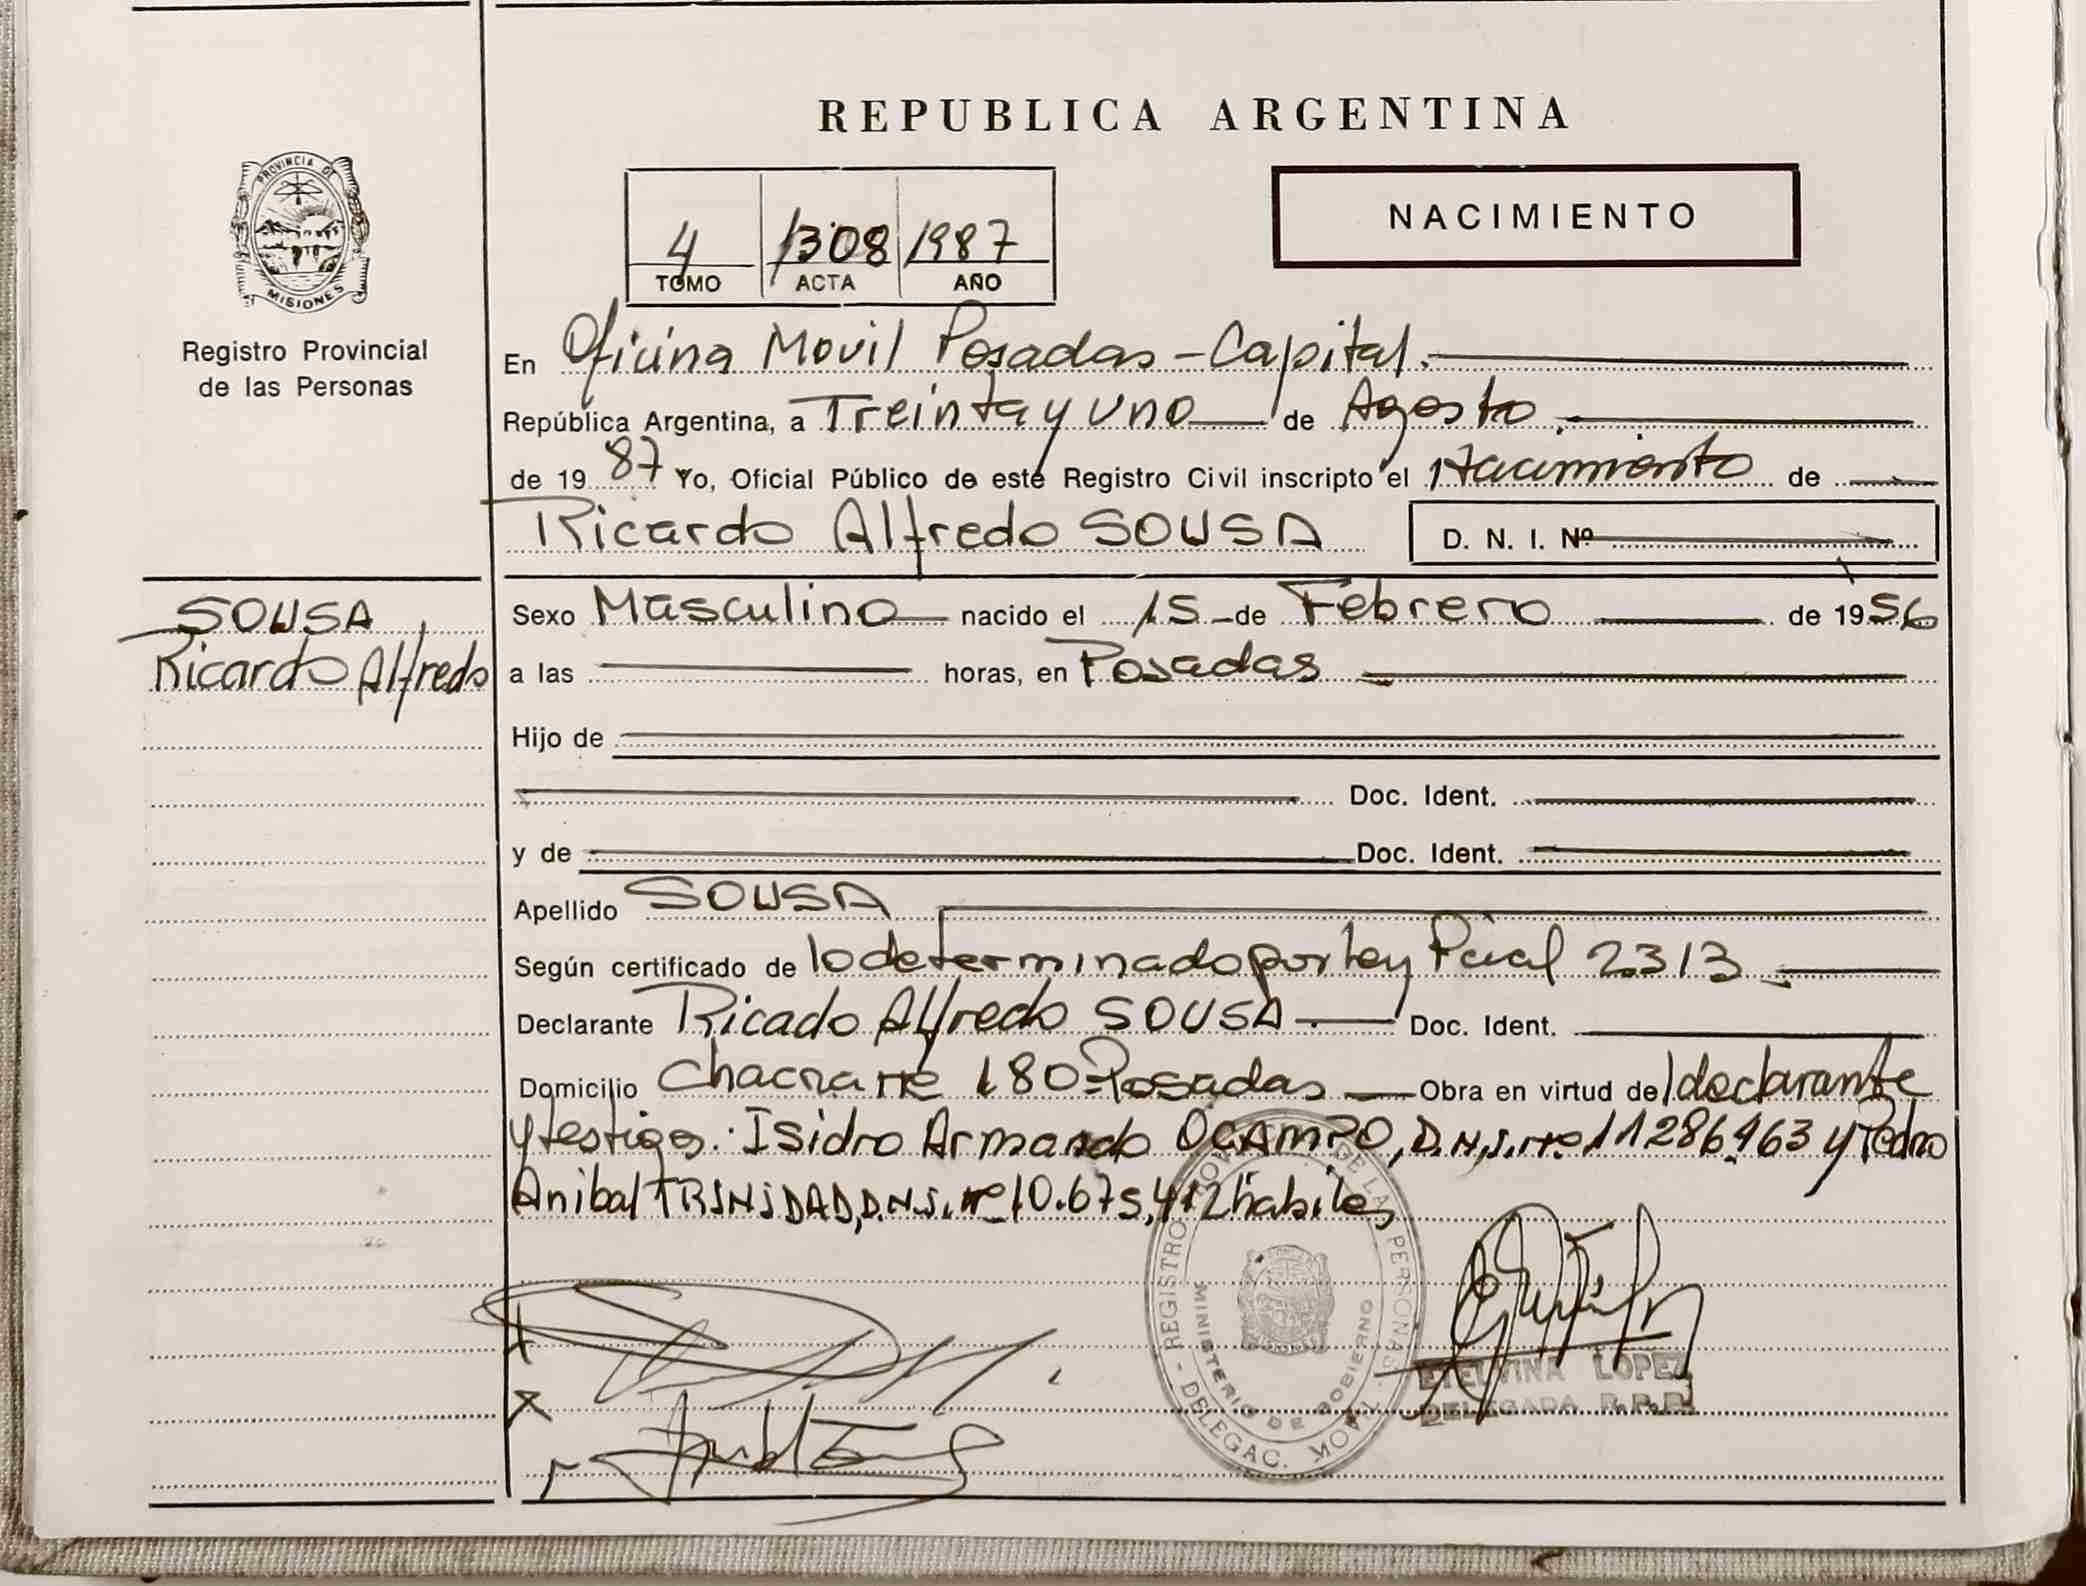 REPUBLICA ARGENTINA
PROVINCIA DE
MISIONES
Registro Provincial
de las Personas
4 1308 1987
TOMO ACTA AÑO
NACIMIENTO
En Oficina Movil Posadas - Capital.
República Argentina, a Treinta y uno de Agosto.
de 1987 Yo, Oficial Público de este Registro Civil inscripto el Nacimiento de
Ricardo Alfredo SOUSA D. N. I. Nº
SOUSA
Ricardo Alfredo
Sexo Masculino nacido el 15 - de Febrero de 1956
a las horas, en Posadas
Hijo de
Doc. Ident.
y de Doc. Ident.
Apellido SOUSA
Según certificado de lo determinado por Ley Pcial 2313
Declarante Ricado Alfredo SOUSA - Doc. Ident.
Domicilio Chacra Nº 180 - Posadas - Obra en virtud del declarante
y testigos: Isidro Armando OCAMPO, D.N.I. Nº 11286.463 y Pedro
Anibal TRINIDAD, D.N.I. Nº 10.675.412 habiles
REGISTRO DE LAS PERSONAS - DELEGAC. MOVIL
MINISTERIO DE GOBIERNO
ETELVINA LOPEZ
DELEGADA R.P.P.